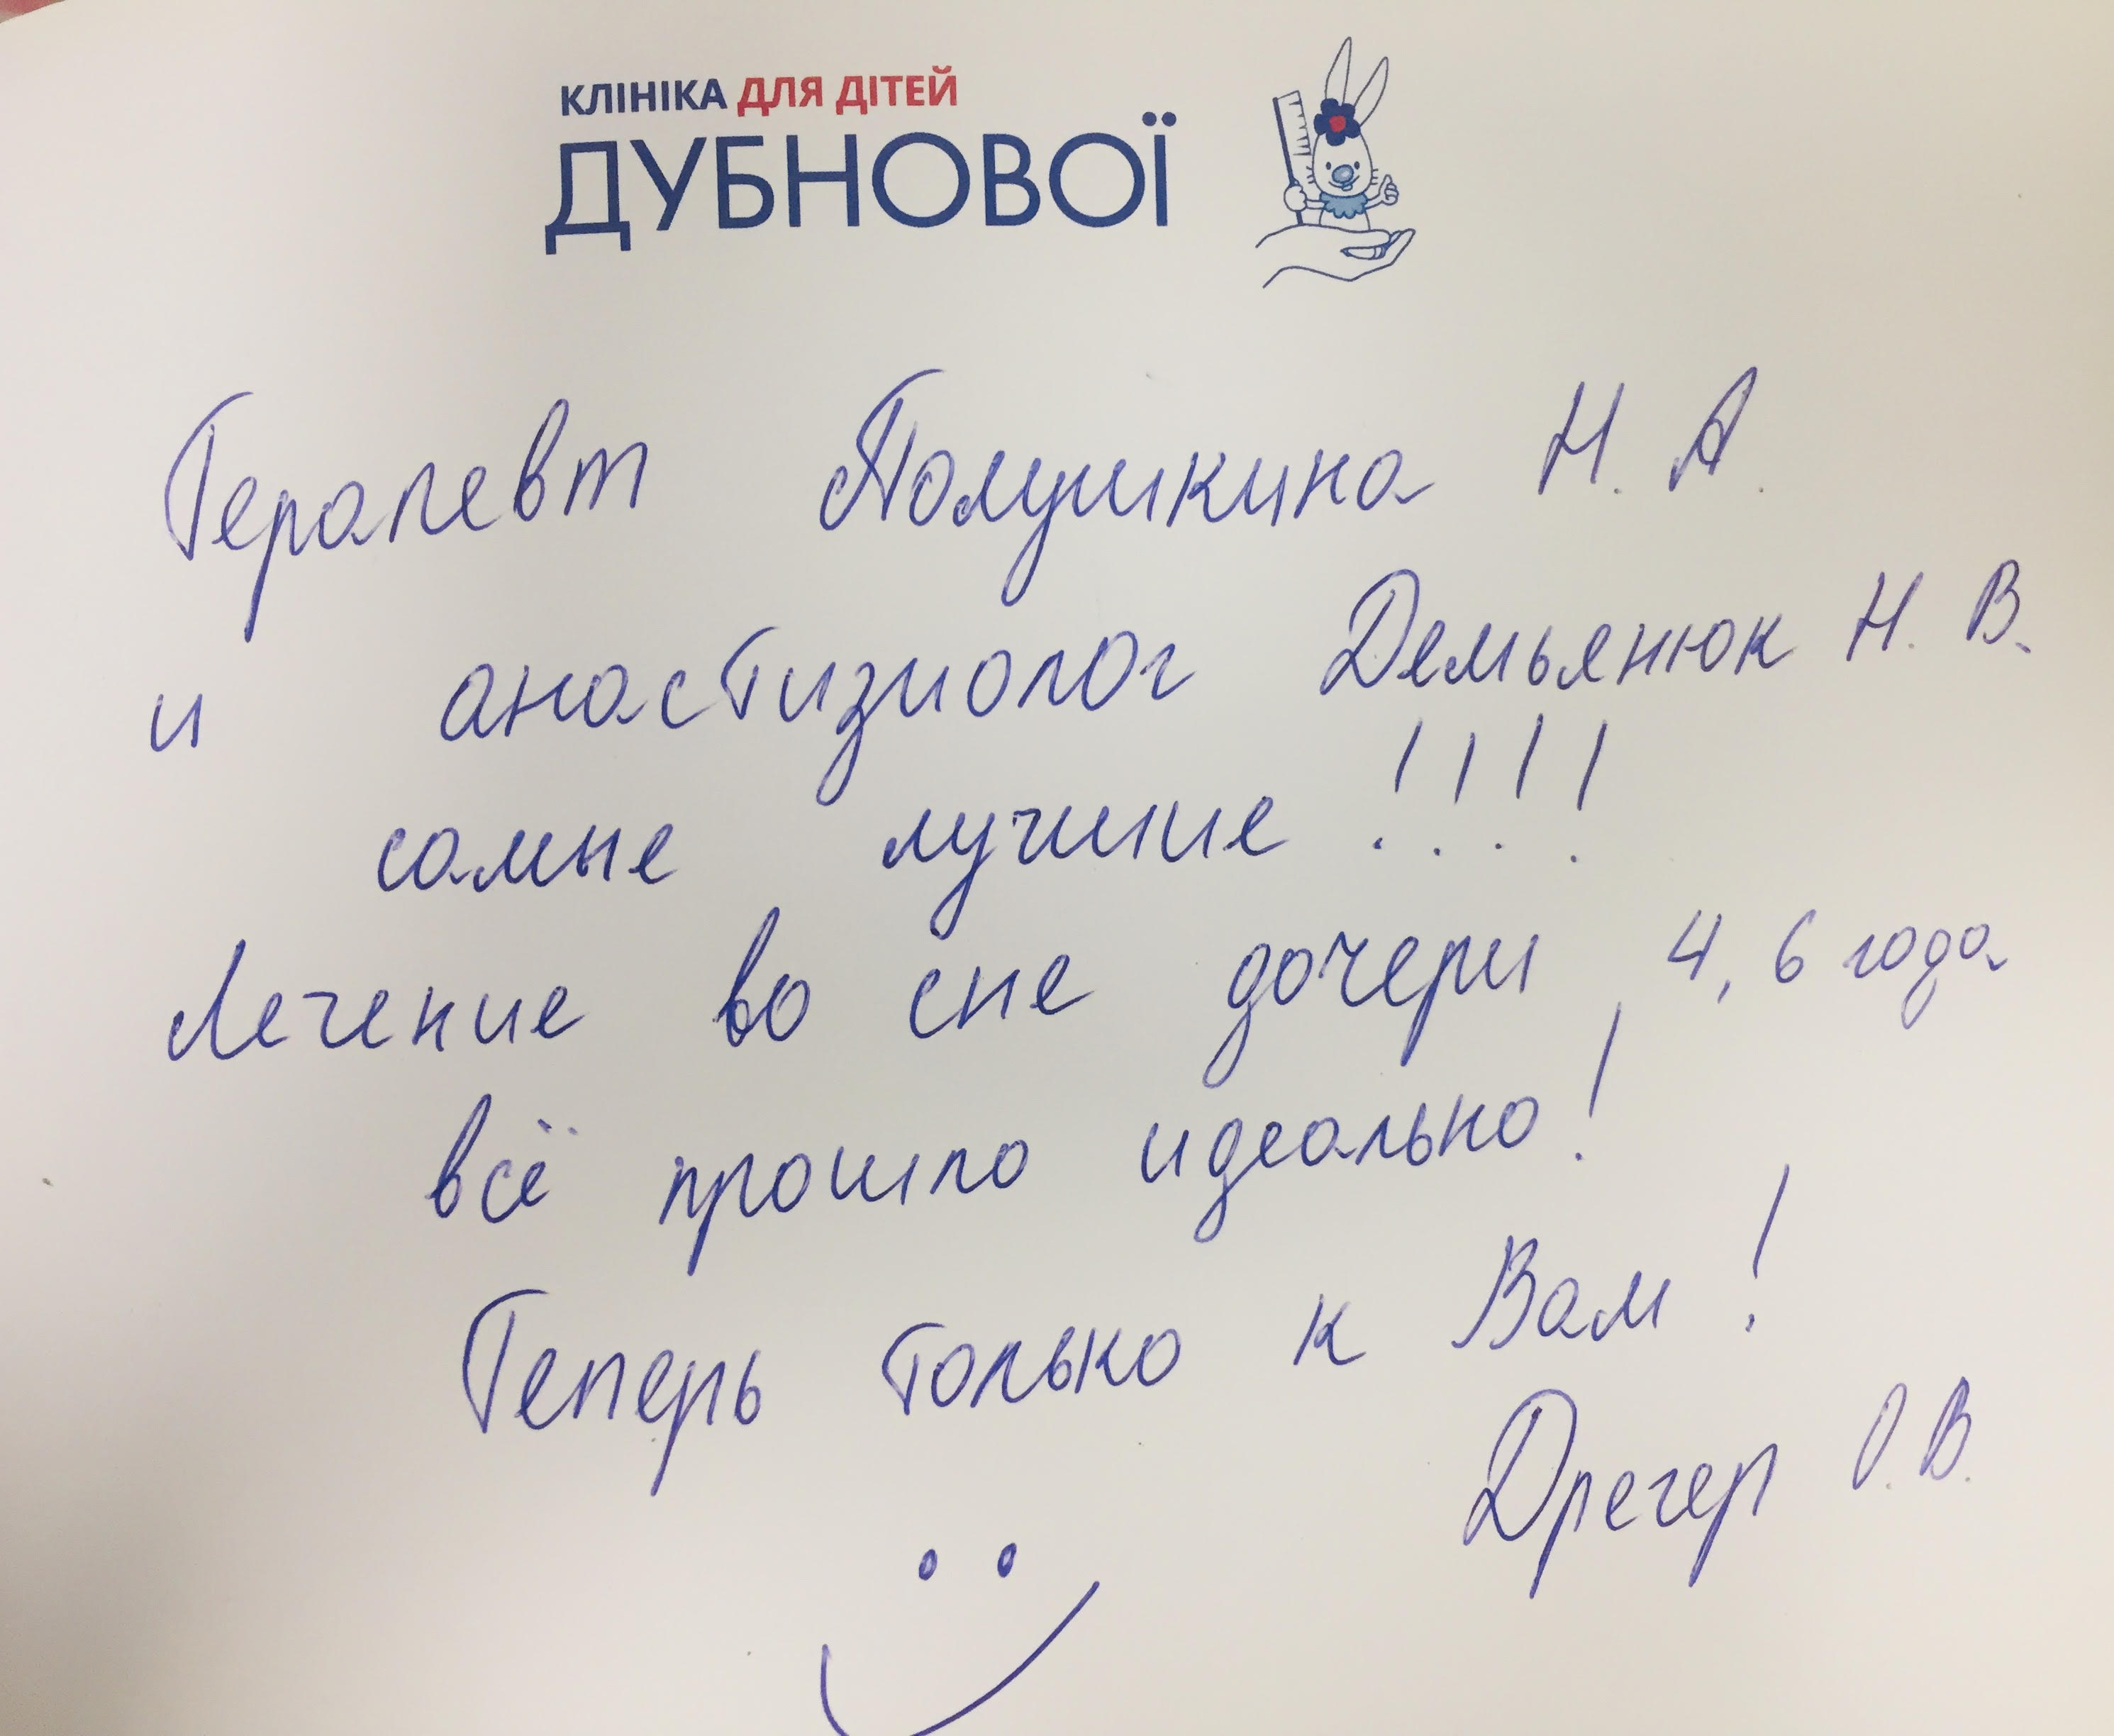 КЛІНІКА ДЛЯ ДІТЕЙ
ДУБНОВОЇ
Терапевт Полушкина Н. А.
и анастизиолог Демьянюк Н. В.
самые лучшие !!!!
Лечение во сне дочери 4,6 года
всё прошло идеально!
Теперь только к Вам!
Дрегер О.В.